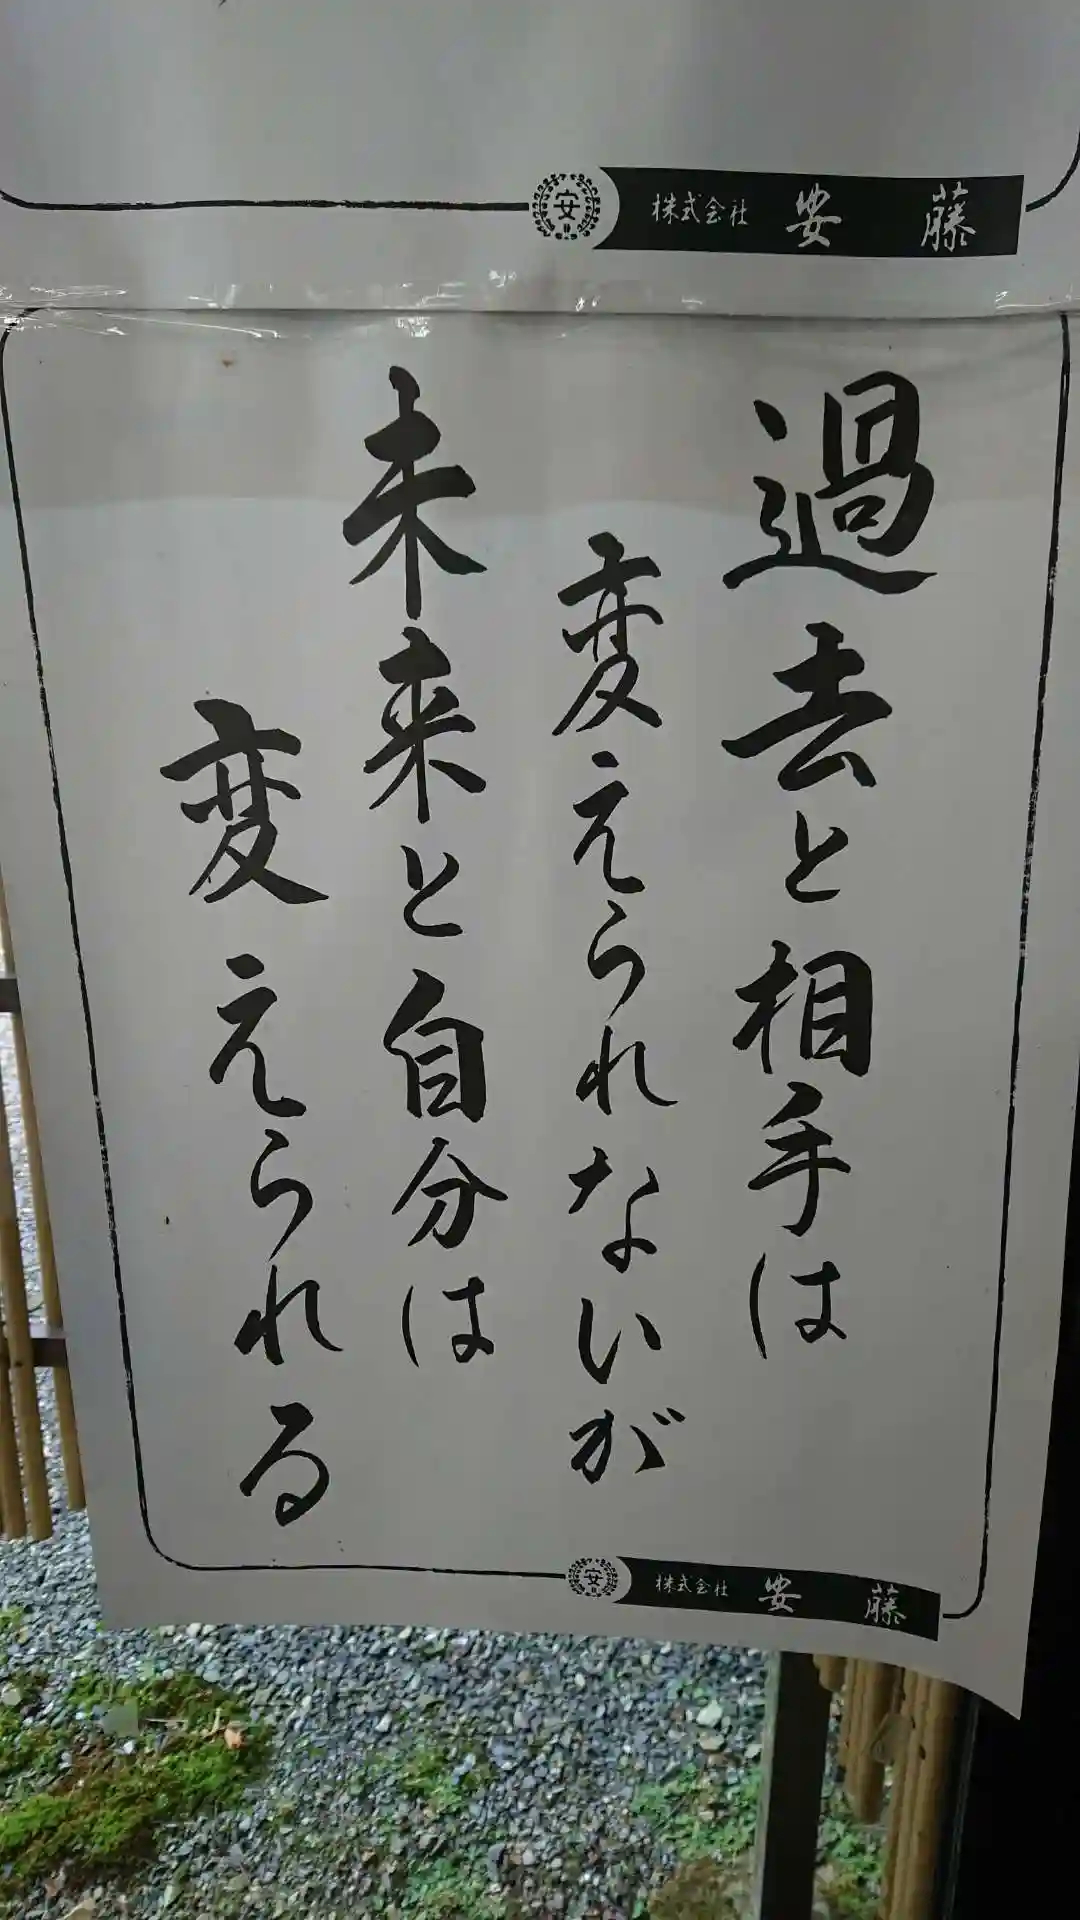 安
株式会社 安藤
過去と相手は
変えられないが
未来と自分は
変えられる
安
株式会社 安藤